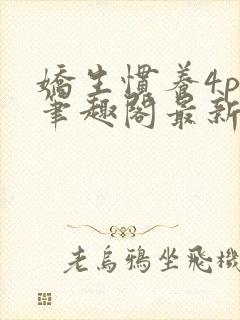 嬌生慣養4p
筆趣閣最新
老烏鴉坐飛機